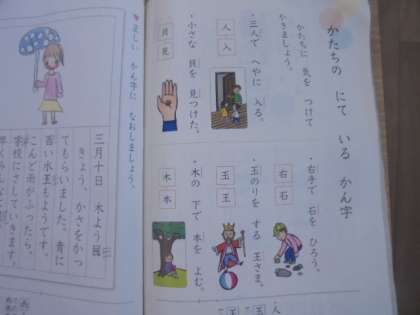 かたちの にて いる かん字
かたちに 気を つけて
かきましょう。
・三人で へやに 入る。
人
入
・小さな 貝を 見つけた。
貝
見
・右手で 石を ひろう。
右
石
・玉のりを する 王さま。
玉
王
・木の 下で 本を よむ。
木
本
正しい かん字に なおしましょう。
三月十日 木よう
きょう、かさをかっ
てもらいました。青に
百い水王もようです。
こんど雨がふったら、
学校にさしていきます。